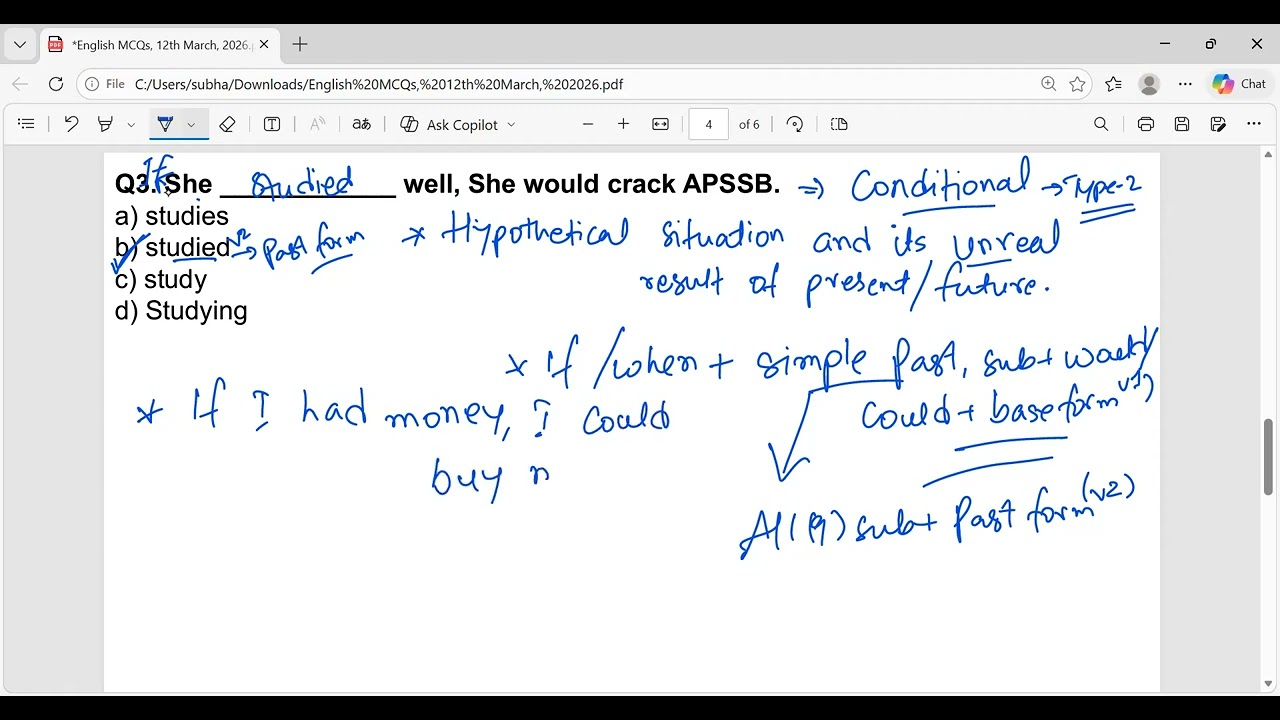 *English MCQs, 12th March, 2026.p
File C:/Users/subha/Downloads/English%20MCQs,%2012th%20March,%202026.pdf
Chat
Ask Copilot
4 of 6
If
Q3. She studied well, She would crack APSSB. ⇒ Conditional → Type-2
a) studies
b) studied V2 → Past form
c) study
d) Studying
* Hypothetical situation and its unreal
result of present/future.
* If /when + simple Past, sub+ would/
could + base form (V1)
* If I had money, I could
buy n
All (9) sub+ Past form (V2)